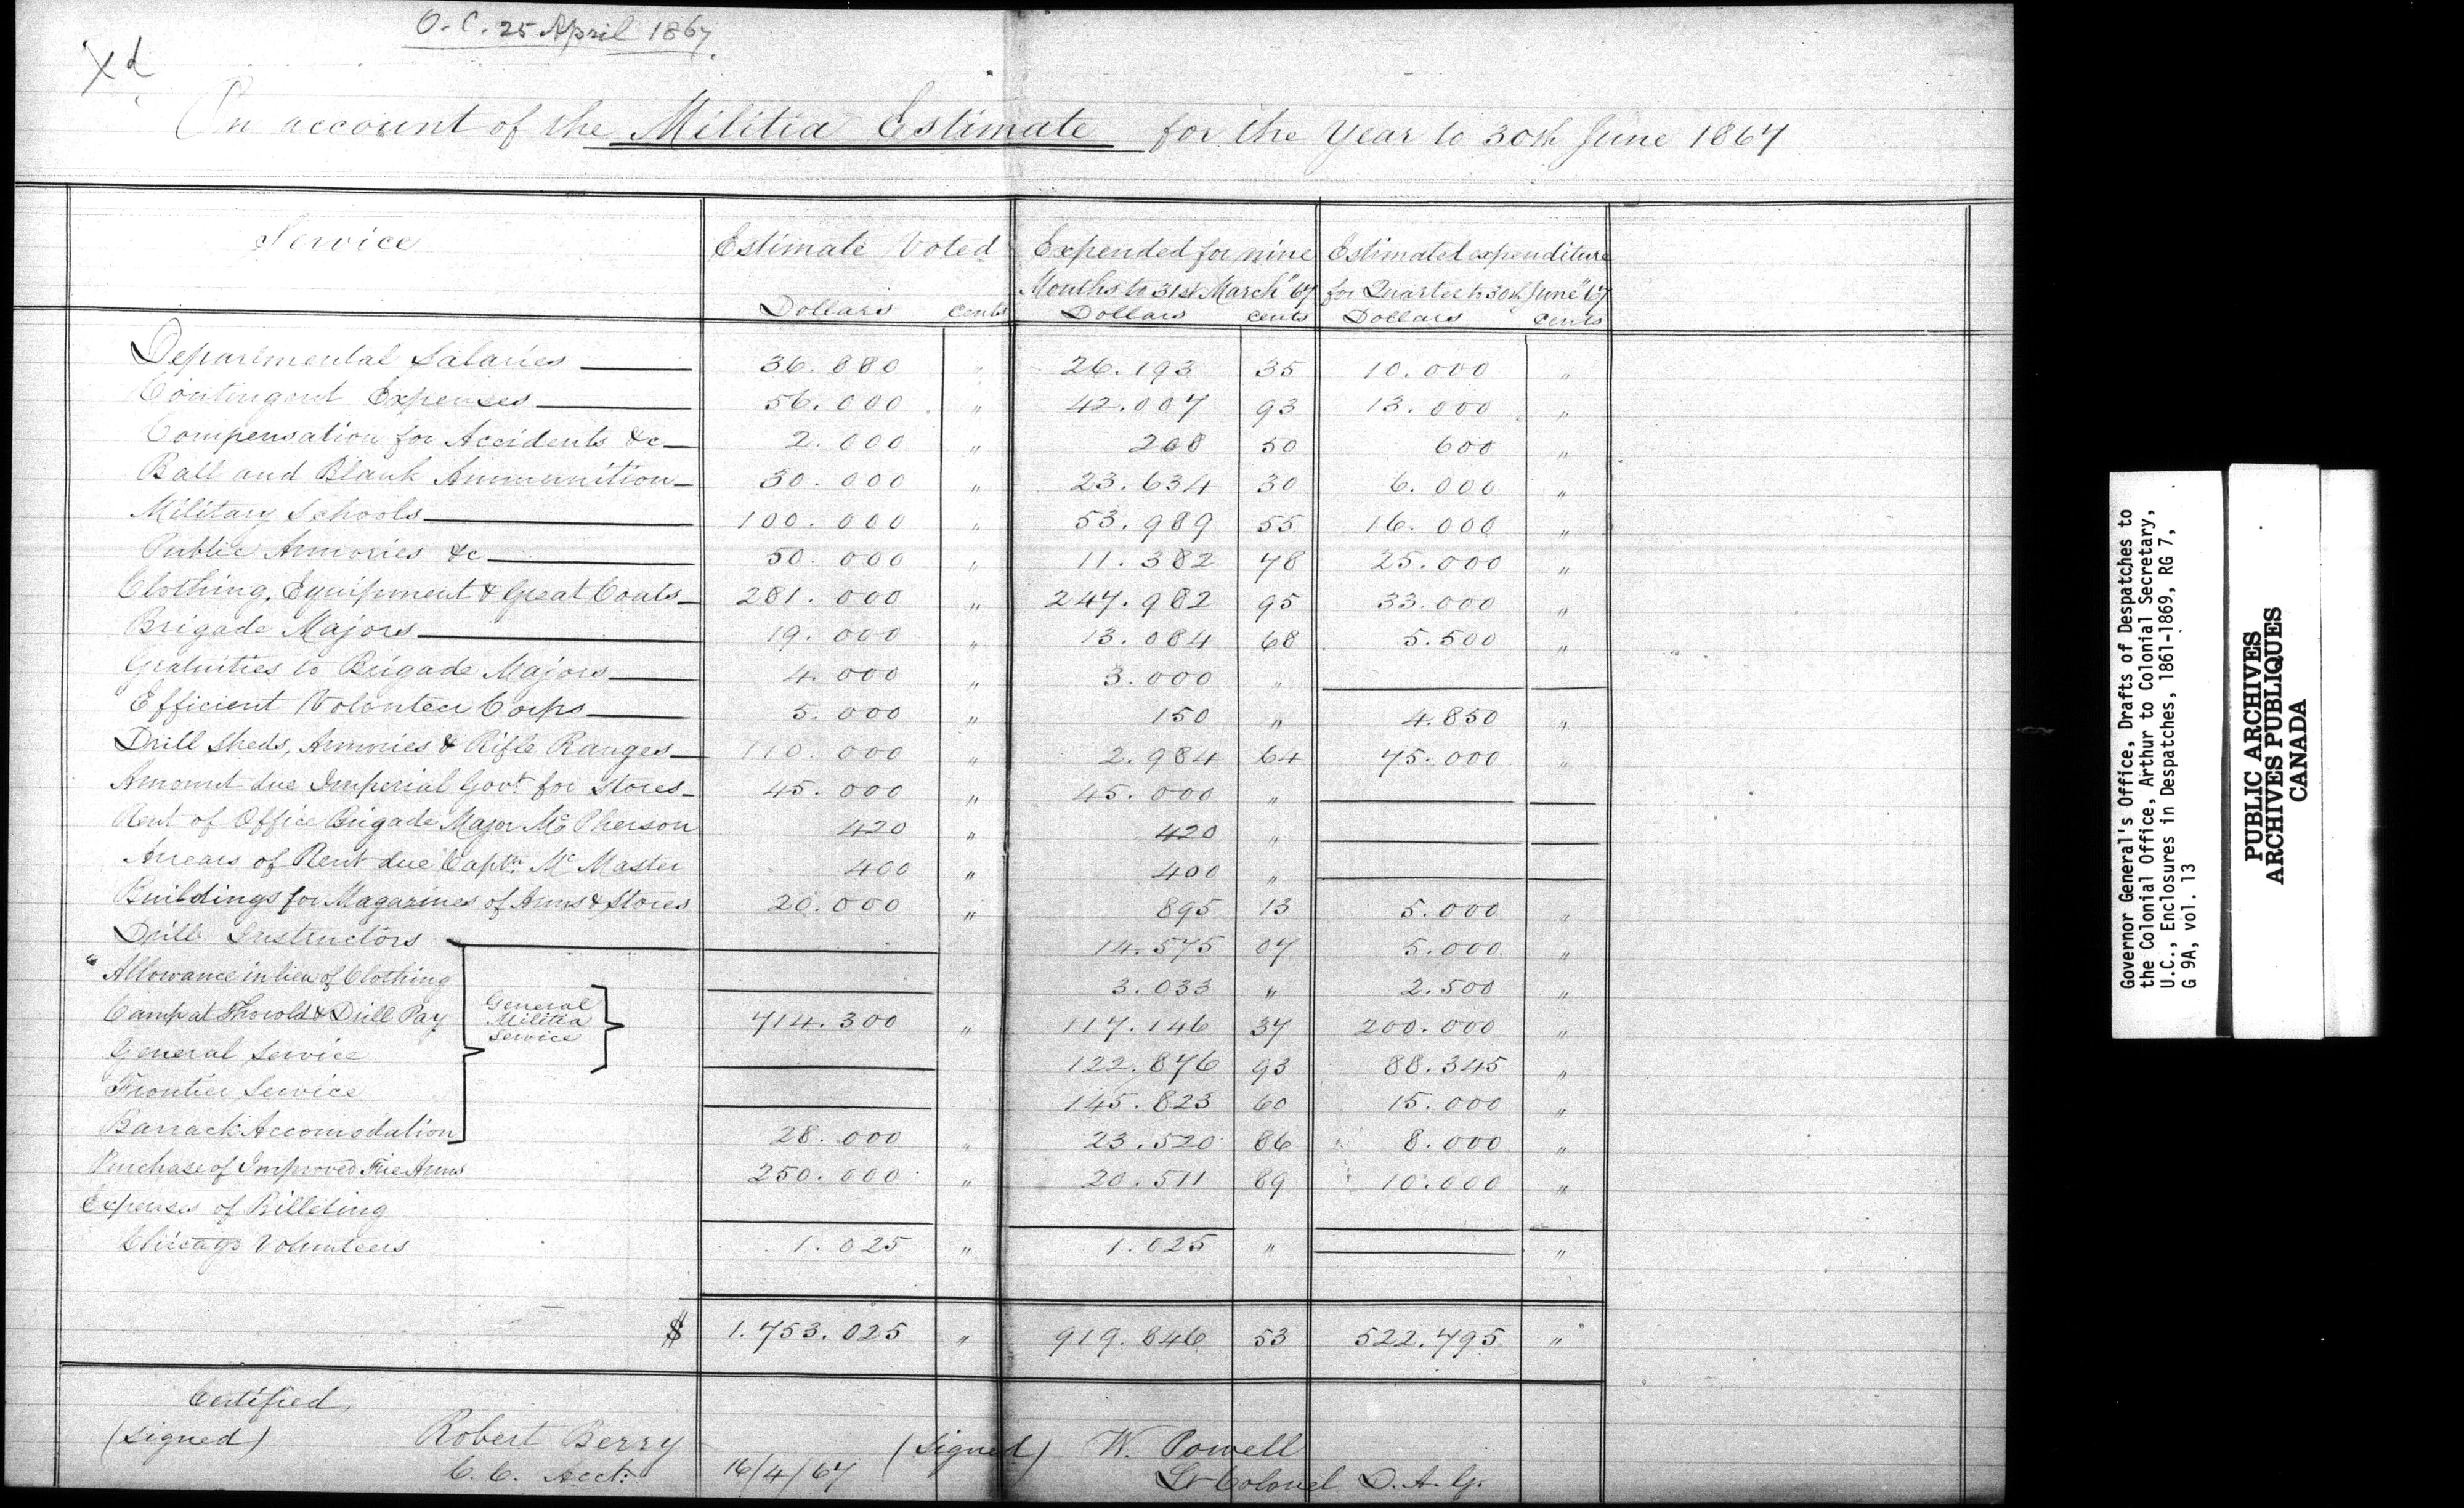 O. C. 25 April 1867.
Xd
On account of the Militia Estimate for the Year to 30th June 1867
Service Estimate Voted Expended for nine Estimated expenditure
Months to 31st March "67 for Quarter to 30th June "67
Dollars Cents Dollars Cents Dollars Cents
Departmental Salaries 36.880 " 26.193 35 10.000 "
Contingent Expenses 56.000 " 42.007 93 13.000 "
Compensation for Accidents &c 2.000 " 208 50 600 "
Ball and Blank Ammunition 30.000 " 23.634 30 6.000 "
Military Schools 100.000 " 53.989 55 16.000 "
Public Armories &c 50.000 " 11.382 78 25.000 "
Clothing, Equipment & Great Coats 281.000 " 247.982 95 33.000 "
Brigade Majors 19.000 " 13.084 68 5.500 "
Gratuities to Brigade Majors 4.000 " 3.000 "
Efficient Volunteer Corps 5.000 " 150 " 4.850 "
Drill Sheds, Armories & Rifle Ranges 110.000 " 2.984 64 75.000 "
Amount due Imperial Govt. for Stores 45.000 " 45.000 "
Rent of Office Brigade Major McPherson 420 " 420 "
Arrears of Rent due Captn. McMaster 400 " 400 "
Buildings for Magazines of Arms & Stores 20.000 " 895 13 5.000 "
Drill Instructors 14.575 07 5.000 "
Allowance in lieu of Clothing 3.033 " 2.500 "
Camp at Thorold & Drill Pay General Militia Service 714.300 " 117.146 37 200.000 "
General Service 122.876 93 88.345 "
Frontier Service 145.823 60 15.000 "
Barrack Accomodation 28.000 " 23.520 86 8.000 "
Purchase of Improved Fire Arms 250.000 " 20.511 89 10.000 "
Expenses of Billeting
Chicago Volunteers 1.025 " 1.025 " "
$ 1.753.025 " 919.846 53 522.795 "
Certified,
(Signed) Robert Berry (Signed) W. Powell
C. C. Acct. 16/4/67 Lt Colonel D. A. G.
Governor General's Office, Drafts of Despatches to
the Colonial Office, Arthur to Colonial Secretary,
U.C., Enclosures in Despatches, 1861-1869, RG 7,
G 9A, vol. 13
PUBLIC ARCHIVES
ARCHIVES PUBLIQUES
CANADA